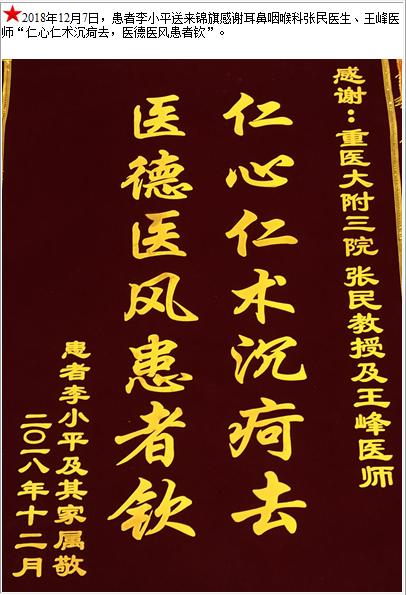 2018年12月7日，患者李小平送来锦旗感谢耳鼻咽喉科张民医生、王峰医
师“仁心仁术沉疴去，医德医风患者钦”。
感谢：重医大附三院张民教授及王峰医师
仁心仁术沉疴去
医德医风患者钦
患者李小平及其家属敬
二〇一八年十二月